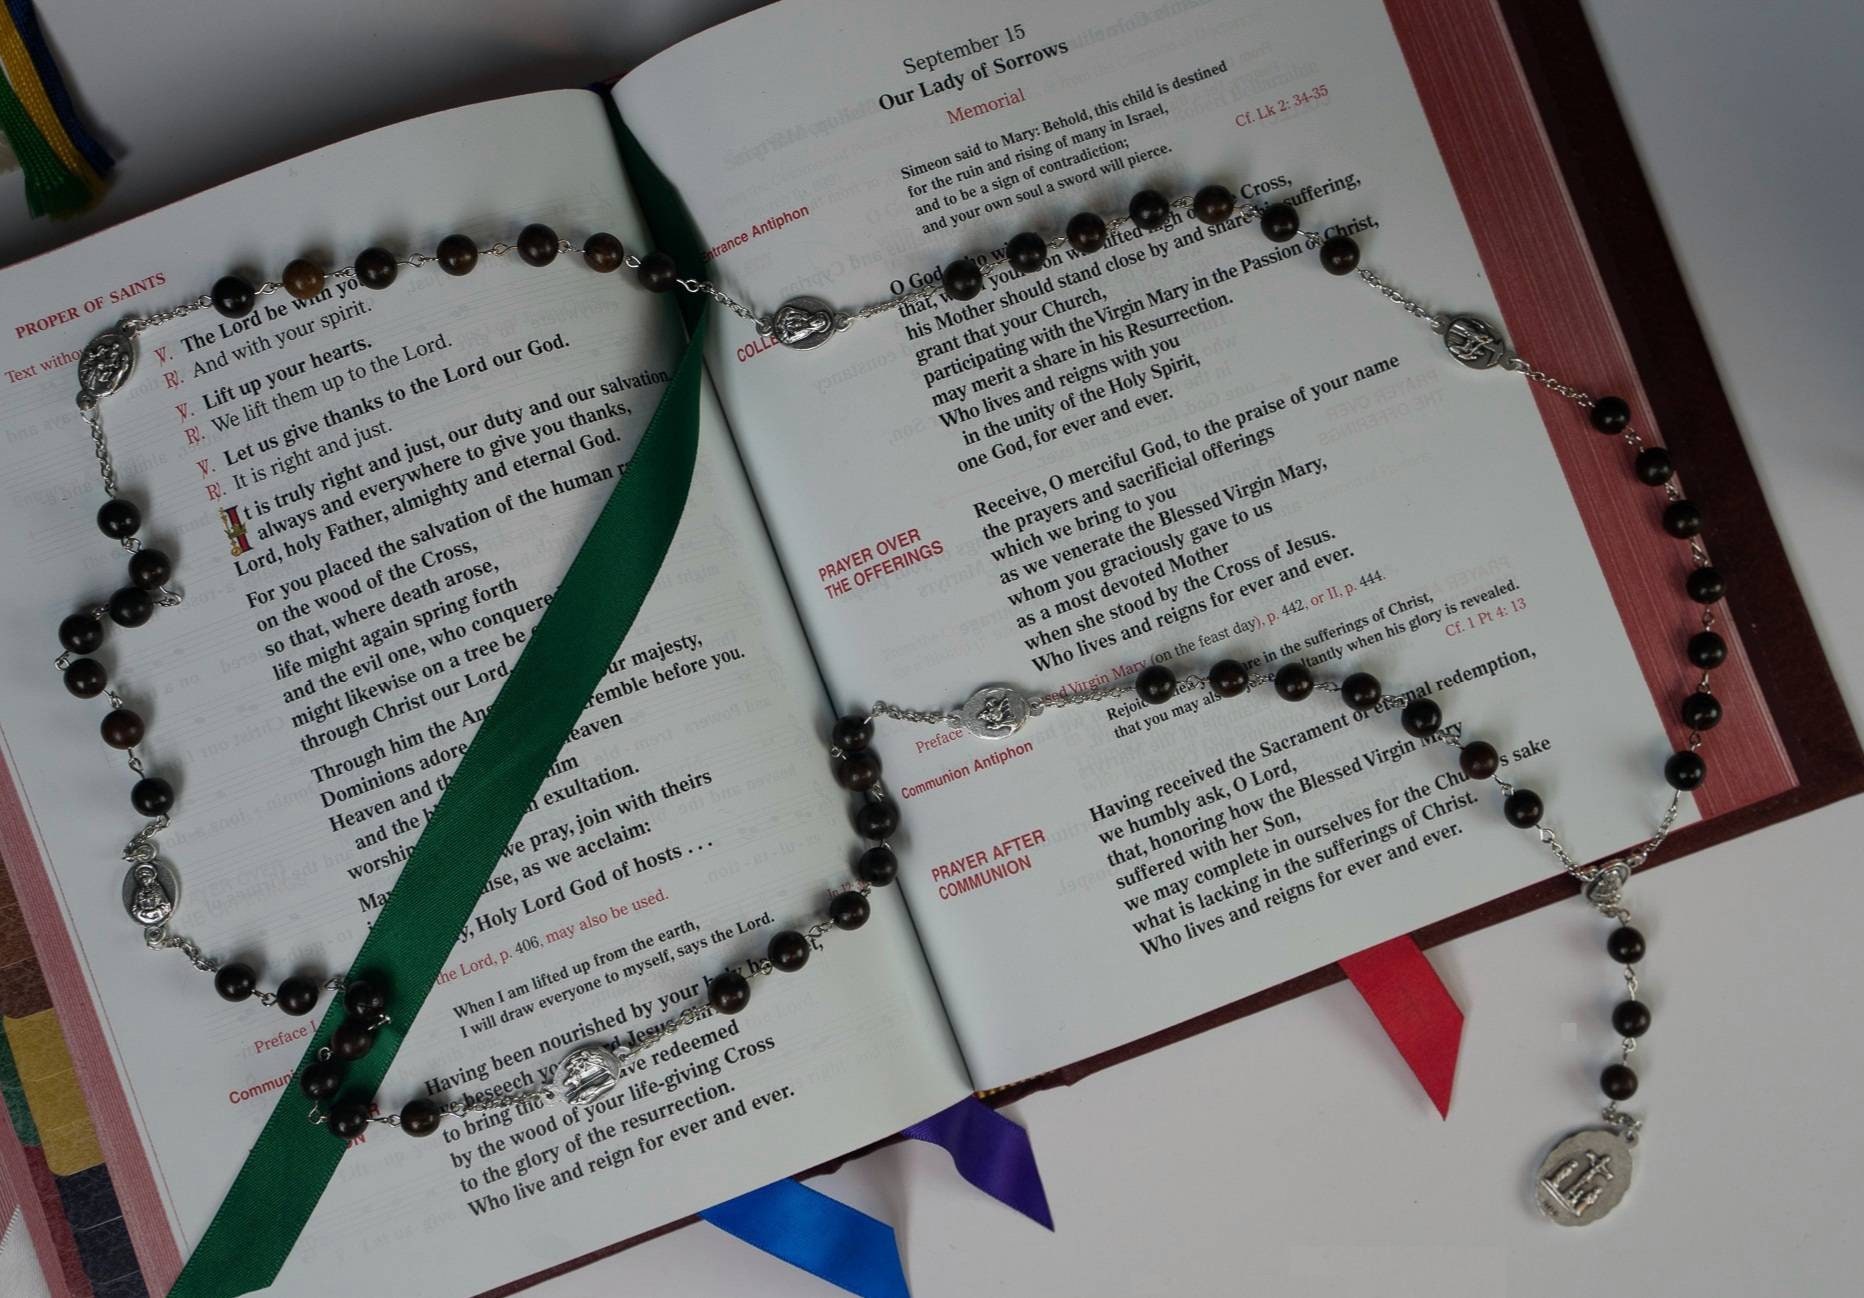 PROPER OF SAINTS
Text without
℣. The Lord be with
℟. And with your spirit.
℣. Lift up your hearts.
℟. We lift them up to the Lord.
℣. Let us give thanks to the Lord our God.
℟. It is right and just.
It is truly right and just, our duty and our salvation,
always and everywhere to give you thanks,
Lord, holy Father, almighty and eternal God.
For you placed the salvation of the human
on the wood of the Cross,
so that, where death arose,
life might again spring forth
and the evil one, who conquered
might likewise on a tree be
through Christ our Lord.
Through him the majesty,
Dominions adore tremble before you.
Heaven and the heaven
and the him
worship exultation.
we pray, join with theirs
as we acclaim:
Holy Lord God of hosts . . .
Preface I the Lord, p. 406, may also be used.
When I am lifted up from the earth,
I will draw everyone to myself, says the Lord.
Having been nourished by your holy
beseech Jesus
to bring redeemed
by the wood of your life-giving Cross
to the glory of the resurrection.
Who live and reign for ever and ever.
September 15
Our Lady of Sorrows
Memorial
Entrance Antiphon
Cf. Lk 2: 34-35
Simeon said to Mary: Behold, this child is destined
for the ruin and rising of many in Israel,
and to be a sign of contradiction;
and your own soul a sword will pierce.
O God, who Cross,
that, your Son lifted high
his Mother should stand close by and share his suffering,
grant that your Church,
participating with the Virgin Mary in the Passion of Christ,
may merit a share in his Resurrection.
Who lives and reigns with you
in the unity of the Holy Spirit,
one God, for ever and ever.
PRAYER OVER
THE OFFERINGS
Receive, O merciful God, to the praise of your name
the prayers and sacrificial offerings
which we bring to you
as we venerate the Blessed Virgin Mary,
whom you graciously gave to us
as a most devoted Mother
when she stood by the Cross of Jesus.
Who lives and reigns for ever and ever.
Preface Virgin Mary (on the feast day), p. 442, or II, p. 444.
Communion Antiphon
Cf. 1 Pt 4: 13
Rejoice when in the sufferings of Christ,
that you may also exultantly when his glory is revealed.
PRAYER AFTER
COMMUNION
Having received the Sacrament of eternal redemption,
we humbly ask, O Lord,
that, honoring how the Blessed Virgin Mary
suffered with her Son,
we may complete in ourselves for the Church's sake
what is lacking in the sufferings of Christ.
Who lives and reigns for ever and ever.